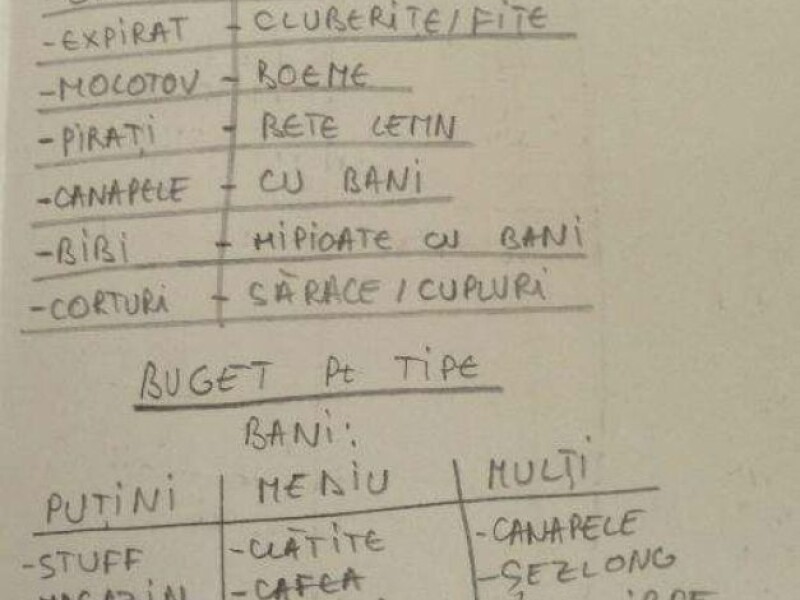 -EXPIRAT - CLUBERIȚE/FIȚE
-MOLOTOV - BOEME
-PIRAȚI - BETE LEMN
-CANAPELE - CU BANI
-BIBI - HIPIOATE CU BANI
-CORTURI - SĂRACE/CUPLURI
BUGET Pt TIPE
BANI:
PUȚINI MEDIU MULȚI
-STUFF -CLĂTITE -CANAPELE
MAGAZIN -CAFEA -ȘEZLONG